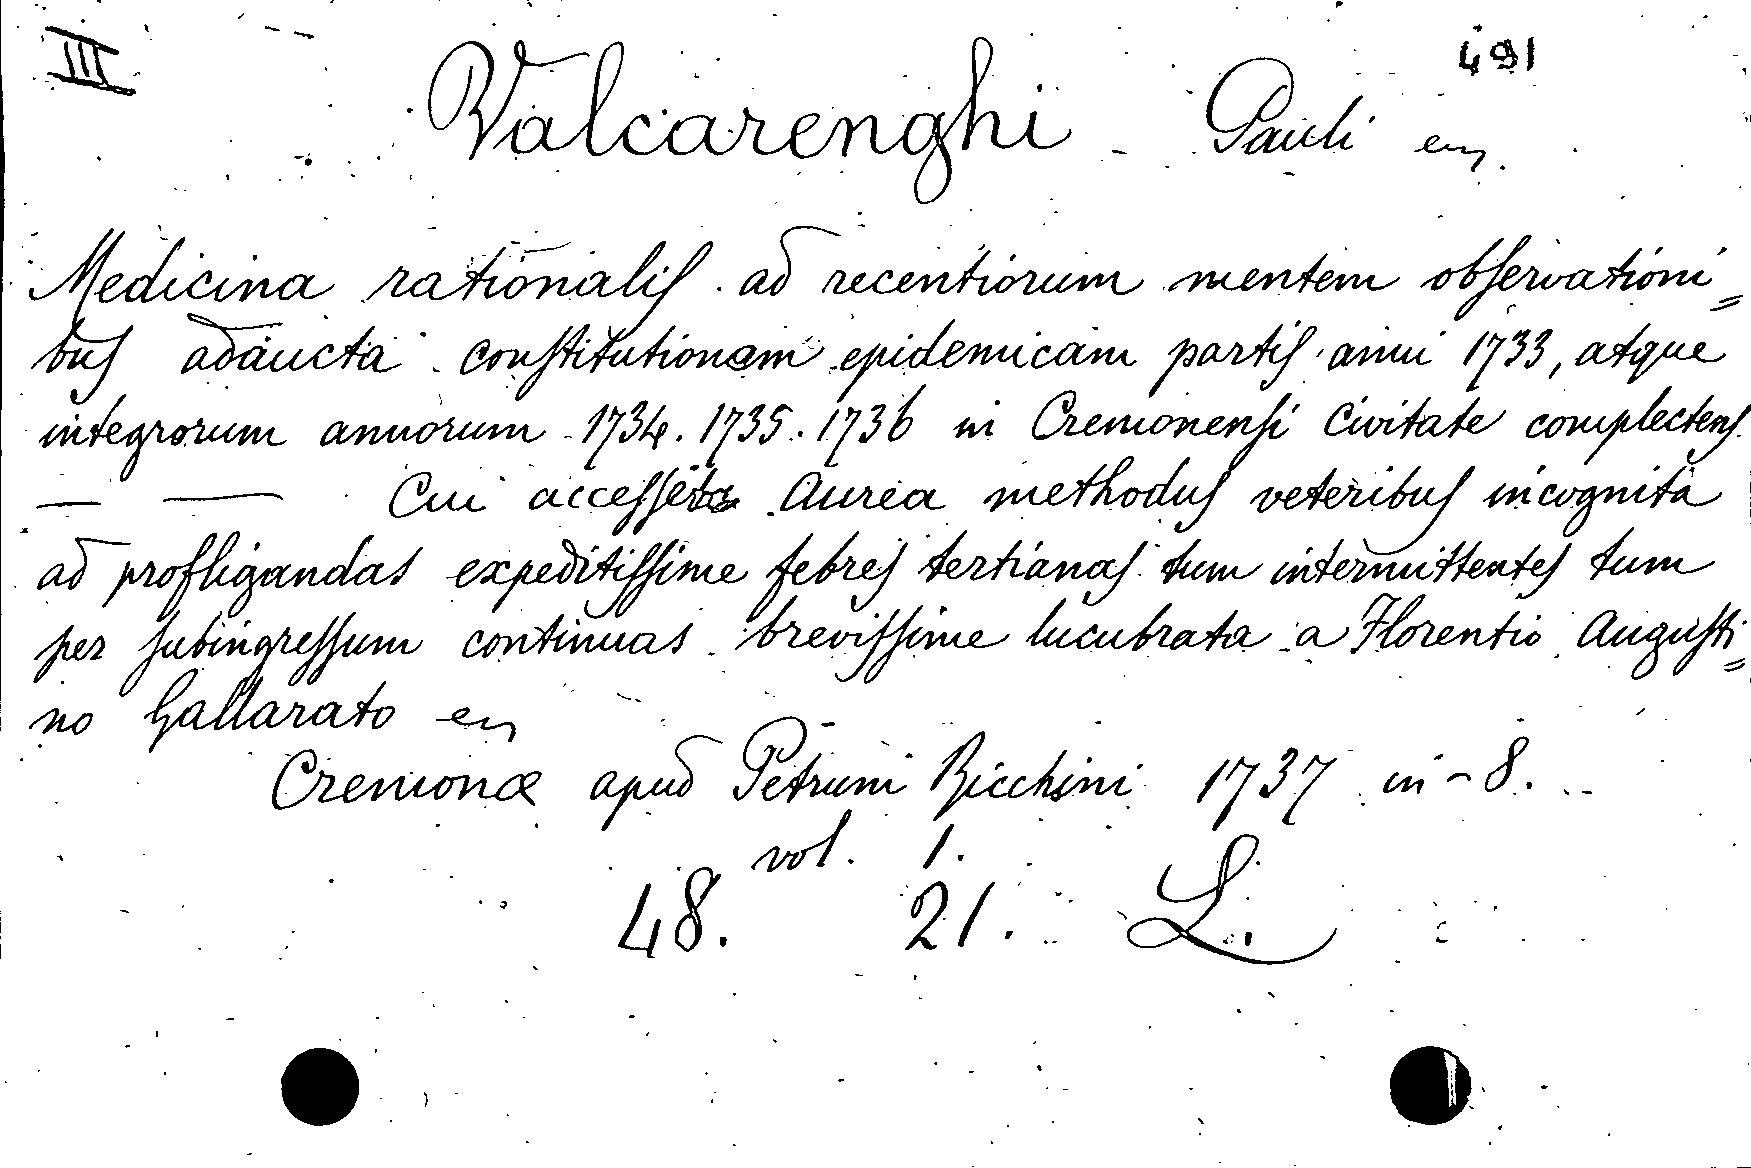 III 491
Valcarenghi Pauli
Medicina rationalis ad recentiorum mentem observationi=
bus adaucta constitutionem epidemicam partis anni 1733, atque
integrorum annorum 1734. 1735. 1736 in Cremonensi Civitate complectens.
— — Cui accessit Aurea methodus veteribus incognita
ad profligandas expeditissime febres tertianas tum intermittentes tum
per subingressum continuas brevissime lucubrata a Florentio Augusti=
no Gallarato
Cremonæ apud Petrum Ricchini 1737 in-8.
vol. 1.
48. 21. L.